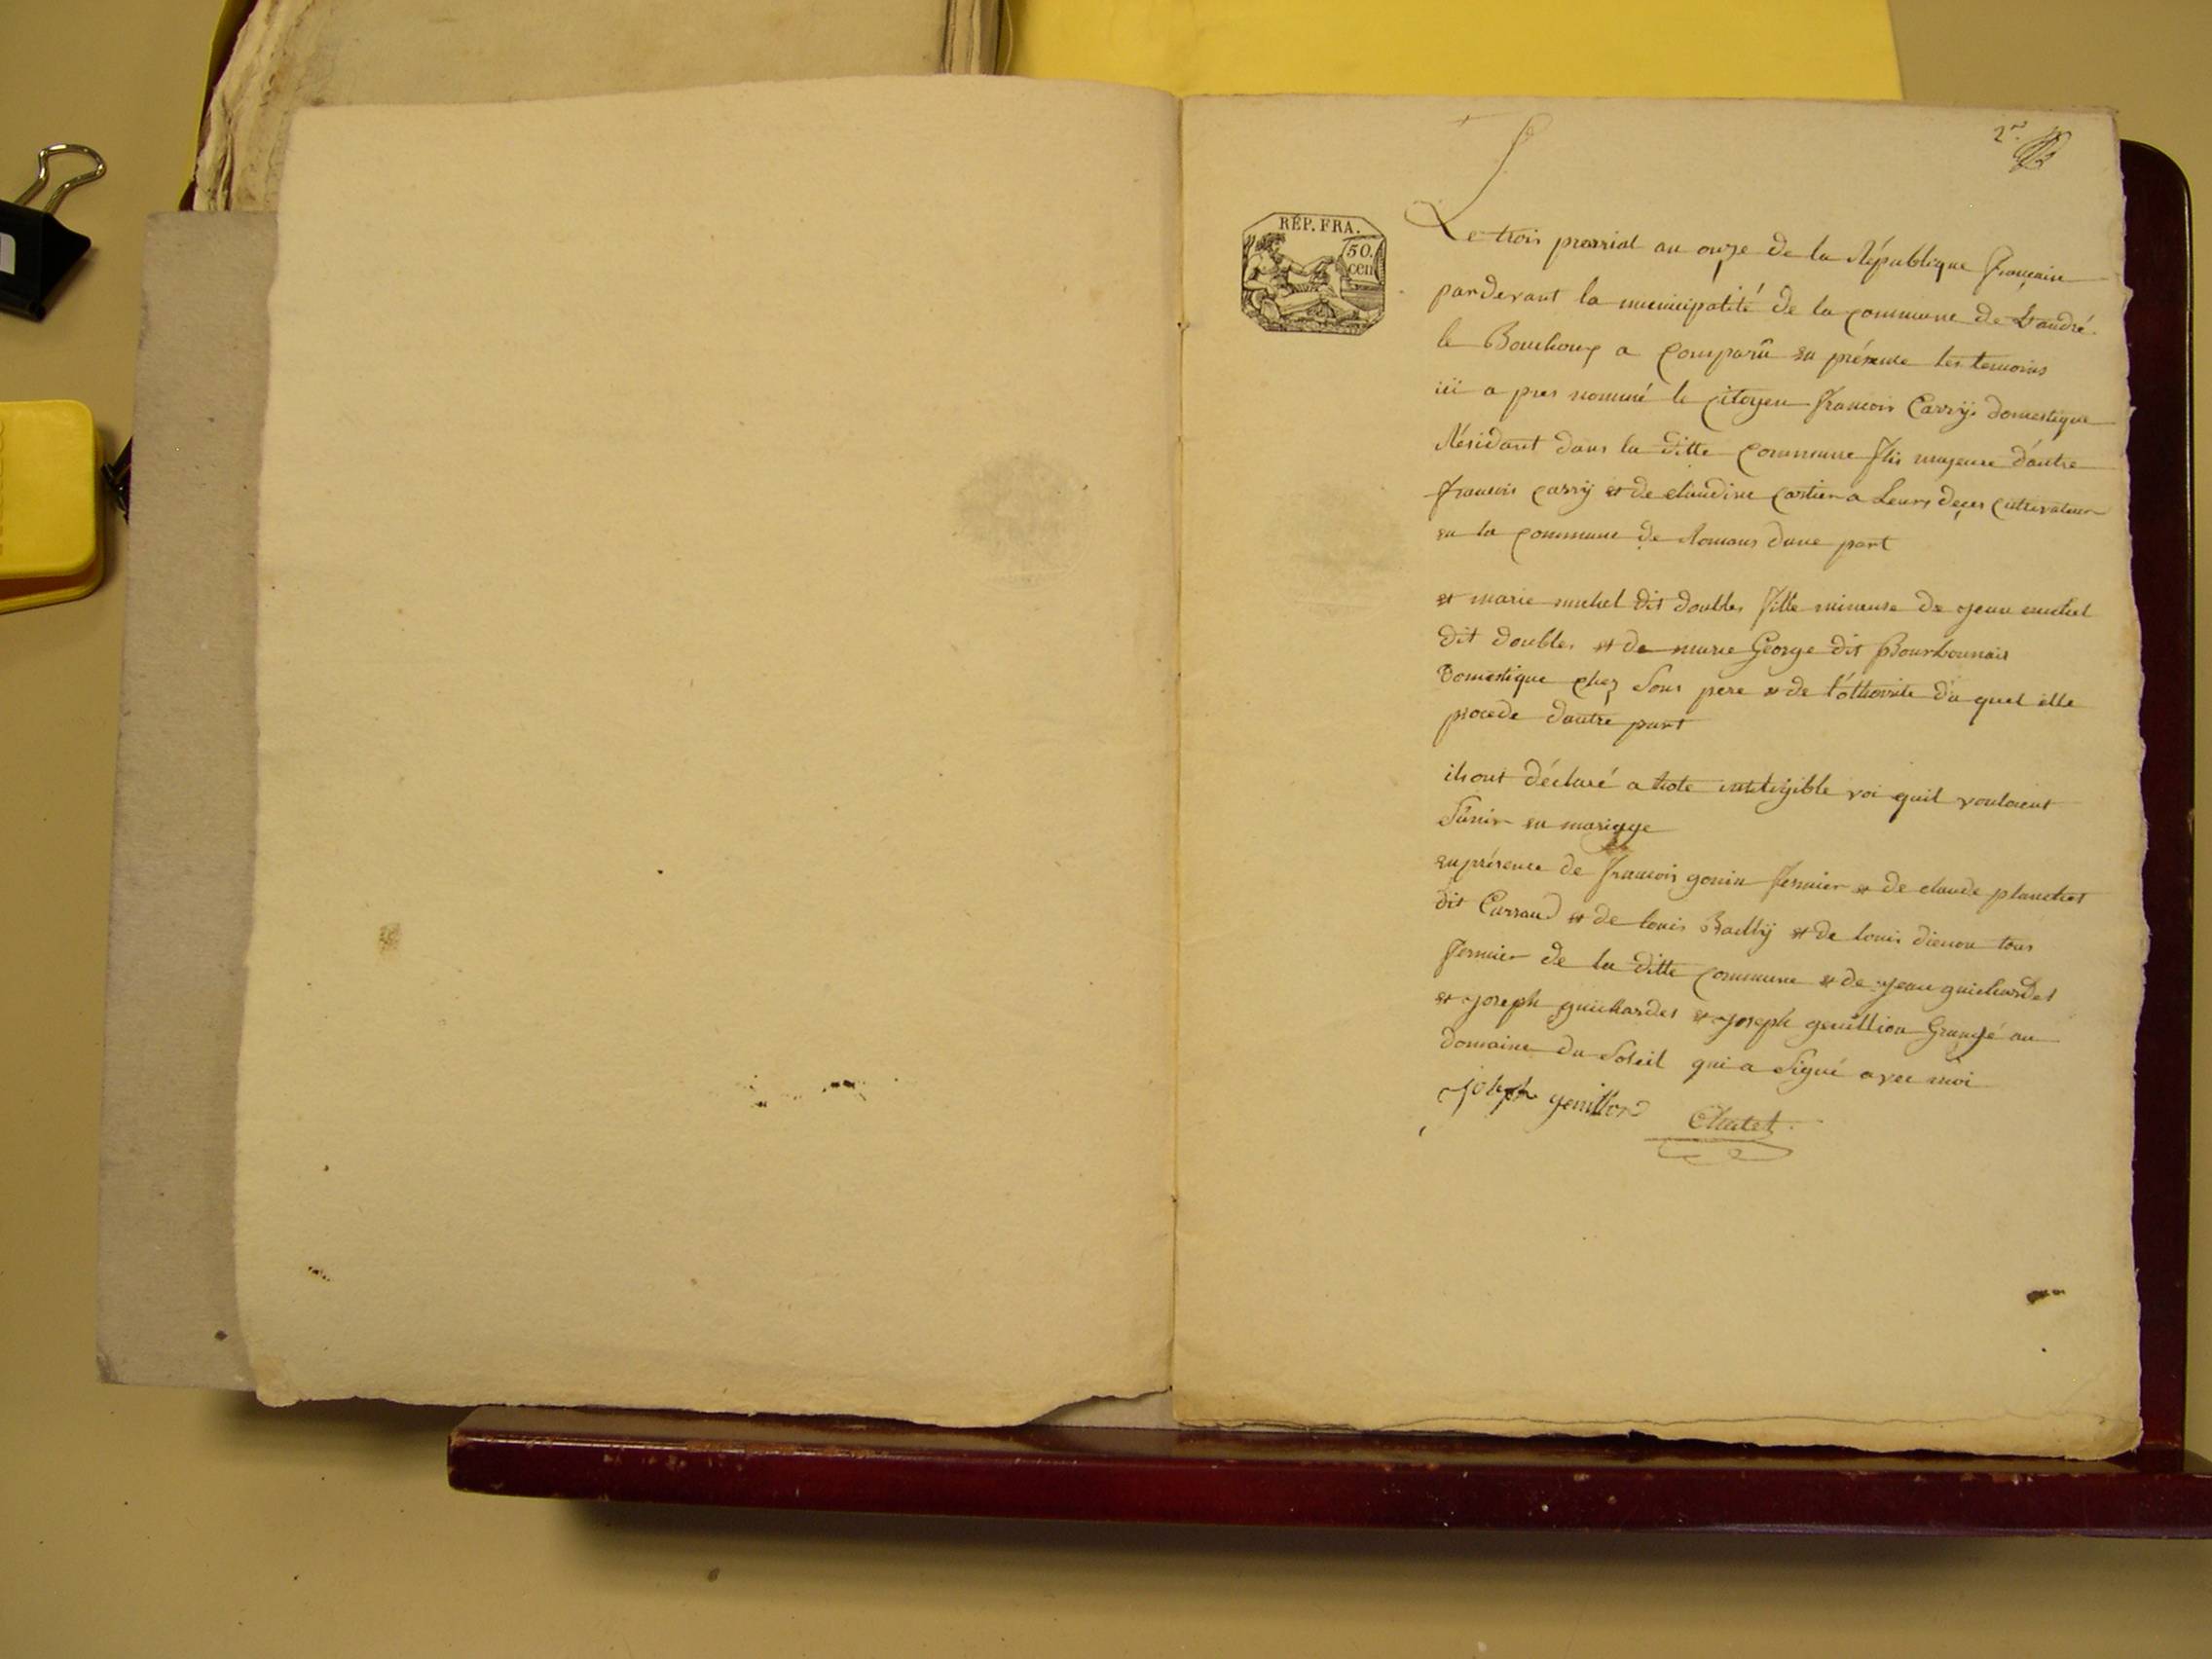 2
RÉP. FRA.
50.
cen
Le trois prerrial an onze de la République francaise
pardevant la municipalité de la commune de St andré
le Bouchoux a comparû en présence les temoins
ici a pres nommé le citoyen francois Carry domestique
Résidant dans la ditte commune fils majeure d'autre
francois carry et de claudine cartier a Leurs deces cultivateur
en la commune de Romans dune part
et marie michel dit doubles fille mineure de jean michel
dit doubles et de marie George dit Bourbonnais
Domestique chez Sons pere et de l'othorite du quel elle
procede dautre part
ils ont déclaré a hote inteligible voi quil vouloient
S'unir en mariage
en présence de francois gonin fermier et de claude planchet
dit Carraud et de louis Bailly et de louis dienon tous
fermier de la ditte commune et de jean guichardet
et joseph guichardet et joseph genillion Grangé au
domaine du Soleil qui a Signé avec moi
joseph genillon Chatet